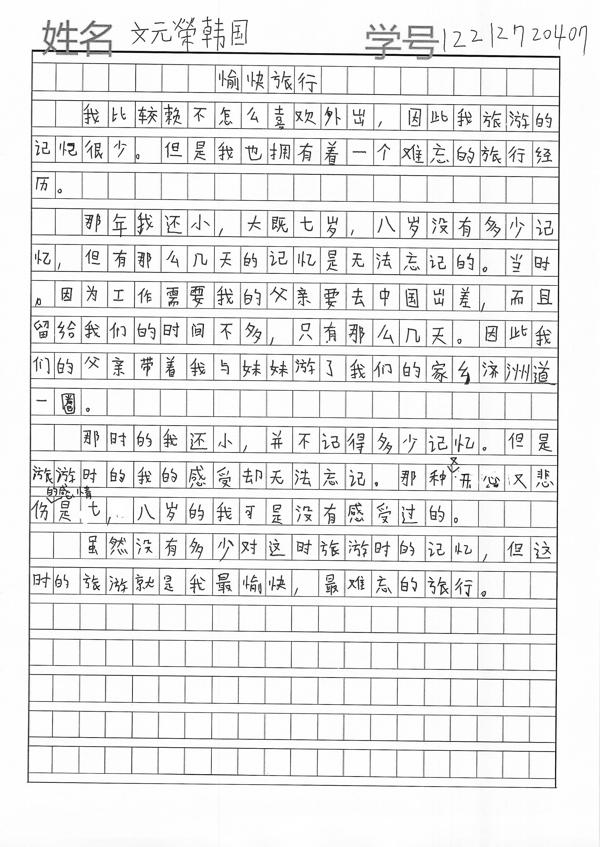 姓名 文元榮韩国 学号 12212720407
愉快旅行
我比较赖不怎么喜欢外出，因此我旅游的
记忆很少。但是我也拥有着一个难忘的旅行经
历。
那年我还小，大既七岁，八岁没有多少记
忆，但有那么几天的记忆是无法忘记的。当时
。因为工作需要我的父亲要去中国出差，而且
留给我们的时间不多，只有那么几天。因此我
们的父亲带着我与妹妹游了我们的家乡济洲道
一圈。
那时的我还小，并不记得多少记忆。但是
旅游时的我的感受却无法忘记。那种又开心又悲
伤的感情是七，八岁的我可是没有感受过的。
虽然没有多少对这时旅游时的记忆，但这
时的旅游就是我最愉快，最难忘的旅行。